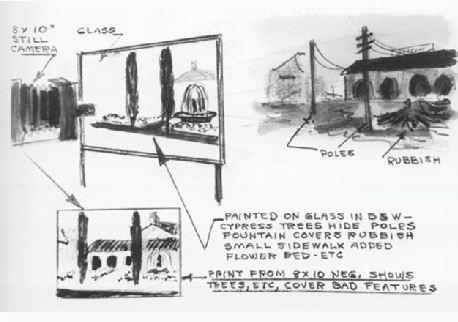 8 X 10"
STILL
CAMERA
GLASS
POLES
RUBBISH
PAINTED ON GLASS IN B&W—
CYPRESS TREES HIDE POLES
FOUNTAIN COVERS RUBBISH
SMALL SIDEWALK ADDED
FLOWER BED - ETC
PRINT FROM 8X10 NEG. SHOWS
TREES, ETC, COVER BAD FEATURES